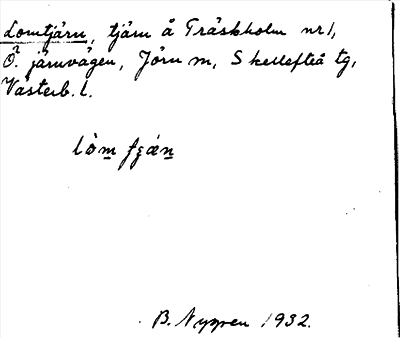 Lomtjärn, tjärn å Träskholm nr 1,
Ö. järnvägen, Jörn m, Skellefteå tg,
Västerb. l.
B. Nygren 1932.